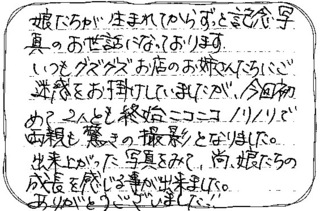 娘たちが生まれてからずっと記念写
真のお世話になっております。
いつもグズグズお店のお姉さんたちにご
迷惑をお掛けしていましたが、今回初
めて2人とも終始ニコニコノリノリで
両親も驚きの撮影となりました。
出来上がった写真をみて、尚、娘たちの
成長を感じる事が出来ました。
ありがとうございました!!